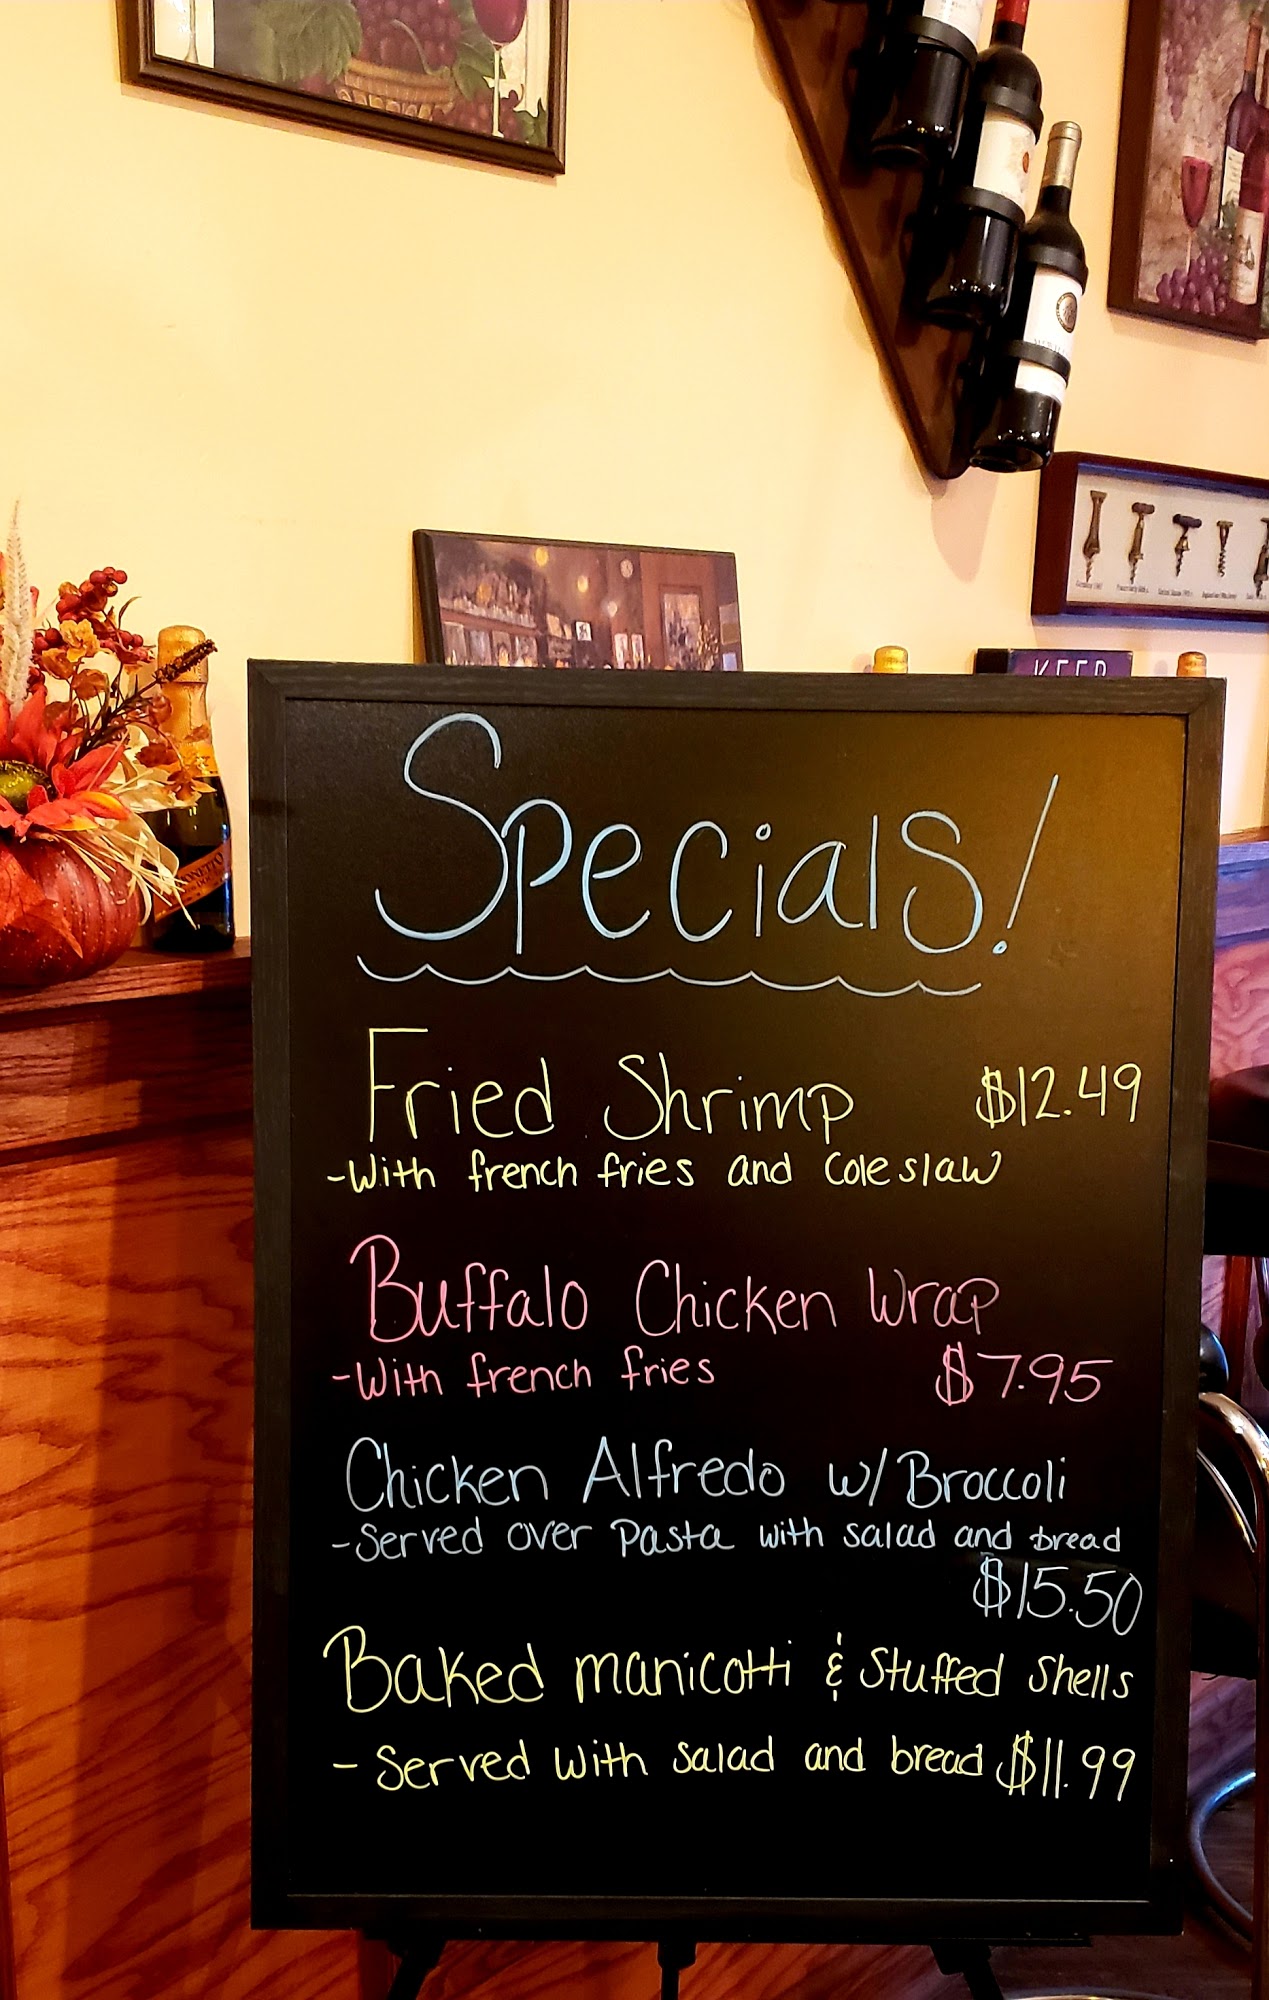 KEEP
Specials!
Fried Shrimp $12.49
-With french fries and Coleslaw
Buffalo Chicken Wrap
-With french fries $7.95
Chicken Alfredo w/ Broccoli
-Served over Pasta with salad and bread
$15.50
Baked manicotti & Stuffed Shells
- Served with salad and bread $11.99